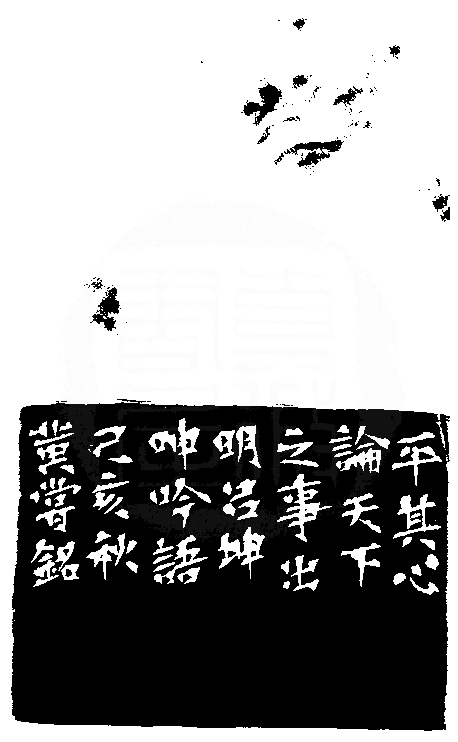 平其心
論天下
之事出
明呂坤
呻吟語
己亥秋
黃嘗銘